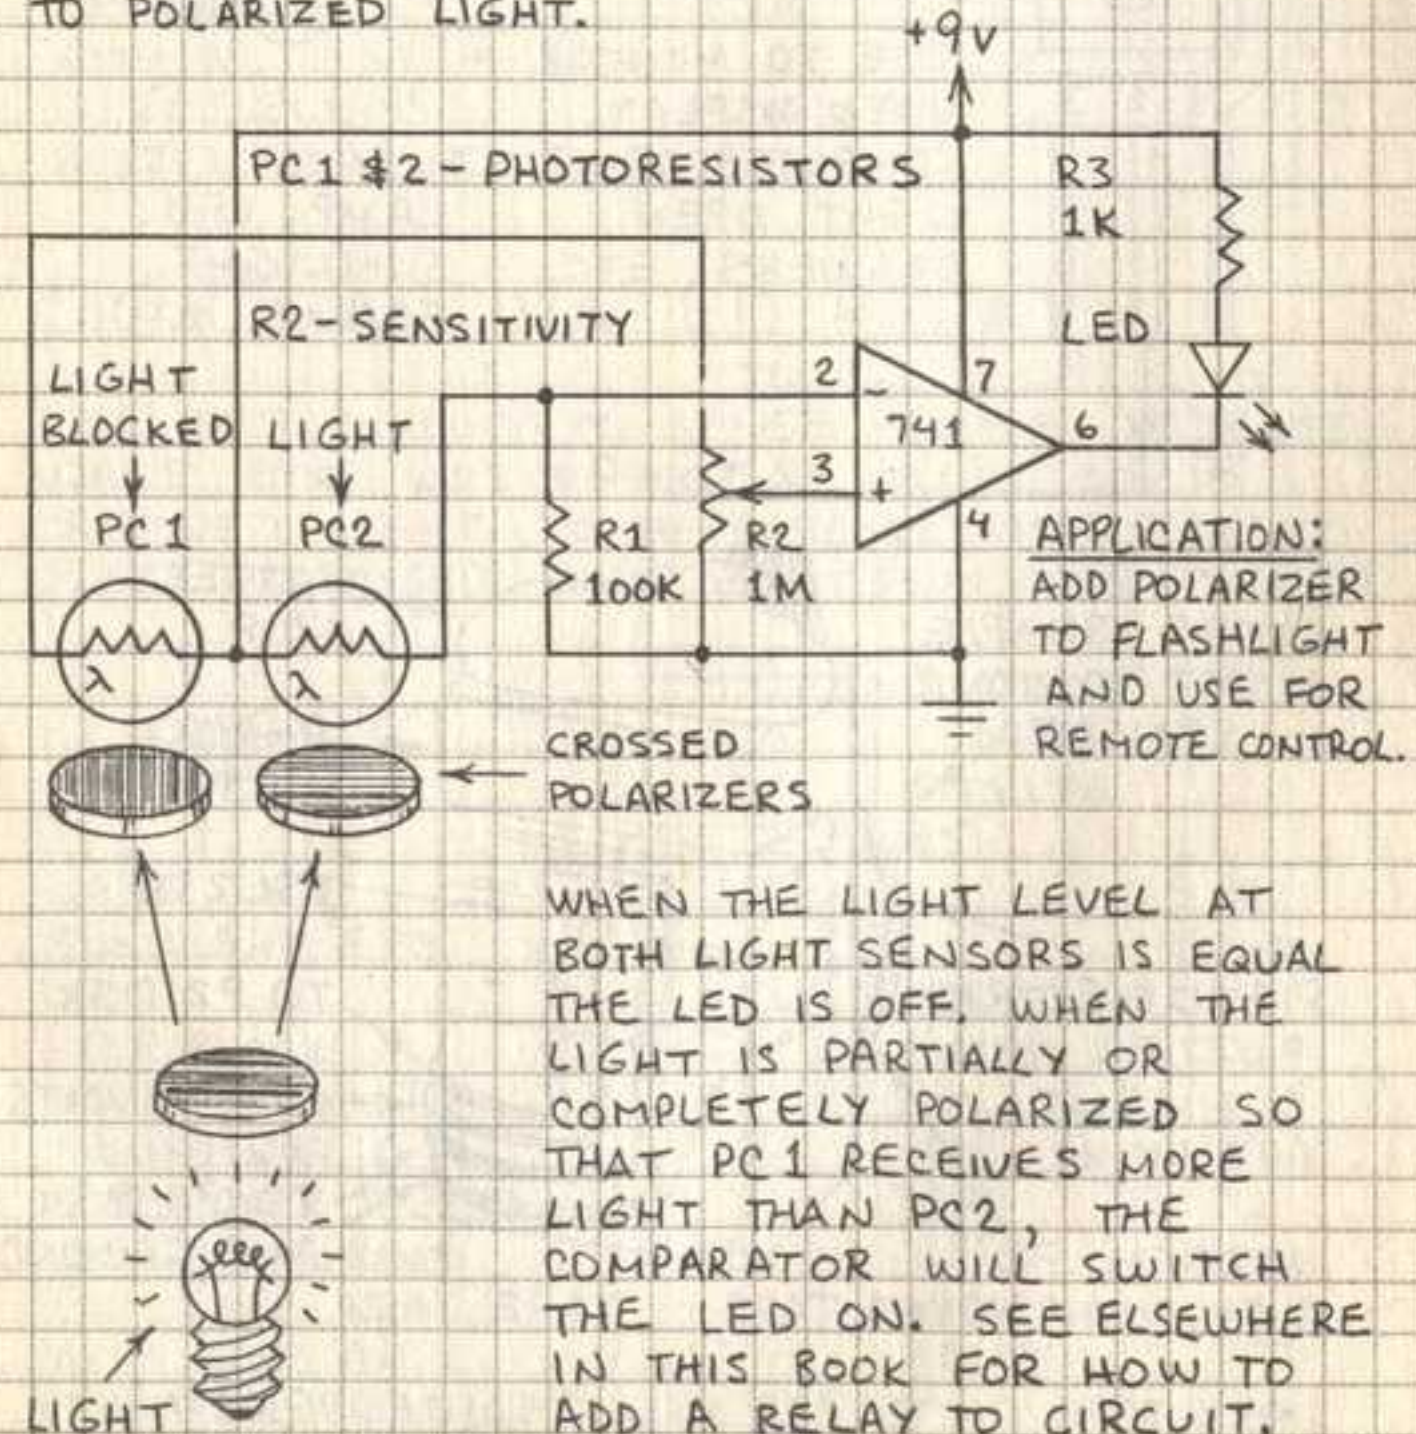 TO POLARIZED LIGHT.
+9V
PC1 & 2 - PHOTORESISTORS
R3
1K
R2 - SENSITIVITY
LED
LIGHT
BLOCKED
LIGHT
PC1
PC2
2
-
7
741
6
3
+
4
R1
100K
R2
1M
λ
λ
APPLICATION:
ADD POLARIZER
TO FLASHLIGHT
AND USE FOR
REMOTE CONTROL.
CROSSED
POLARIZERS
WHEN THE LIGHT LEVEL AT
BOTH LIGHT SENSORS IS EQUAL
THE LED IS OFF. WHEN THE
LIGHT IS PARTIALLY OR
COMPLETELY POLARIZED SO
THAT PC1 RECEIVES MORE
LIGHT THAN PC2, THE
COMPARATOR WILL SWITCH
THE LED ON. SEE ELSEWHERE
IN THIS BOOK FOR HOW TO
ADD A RELAY TO CIRCUIT.
LIGHT